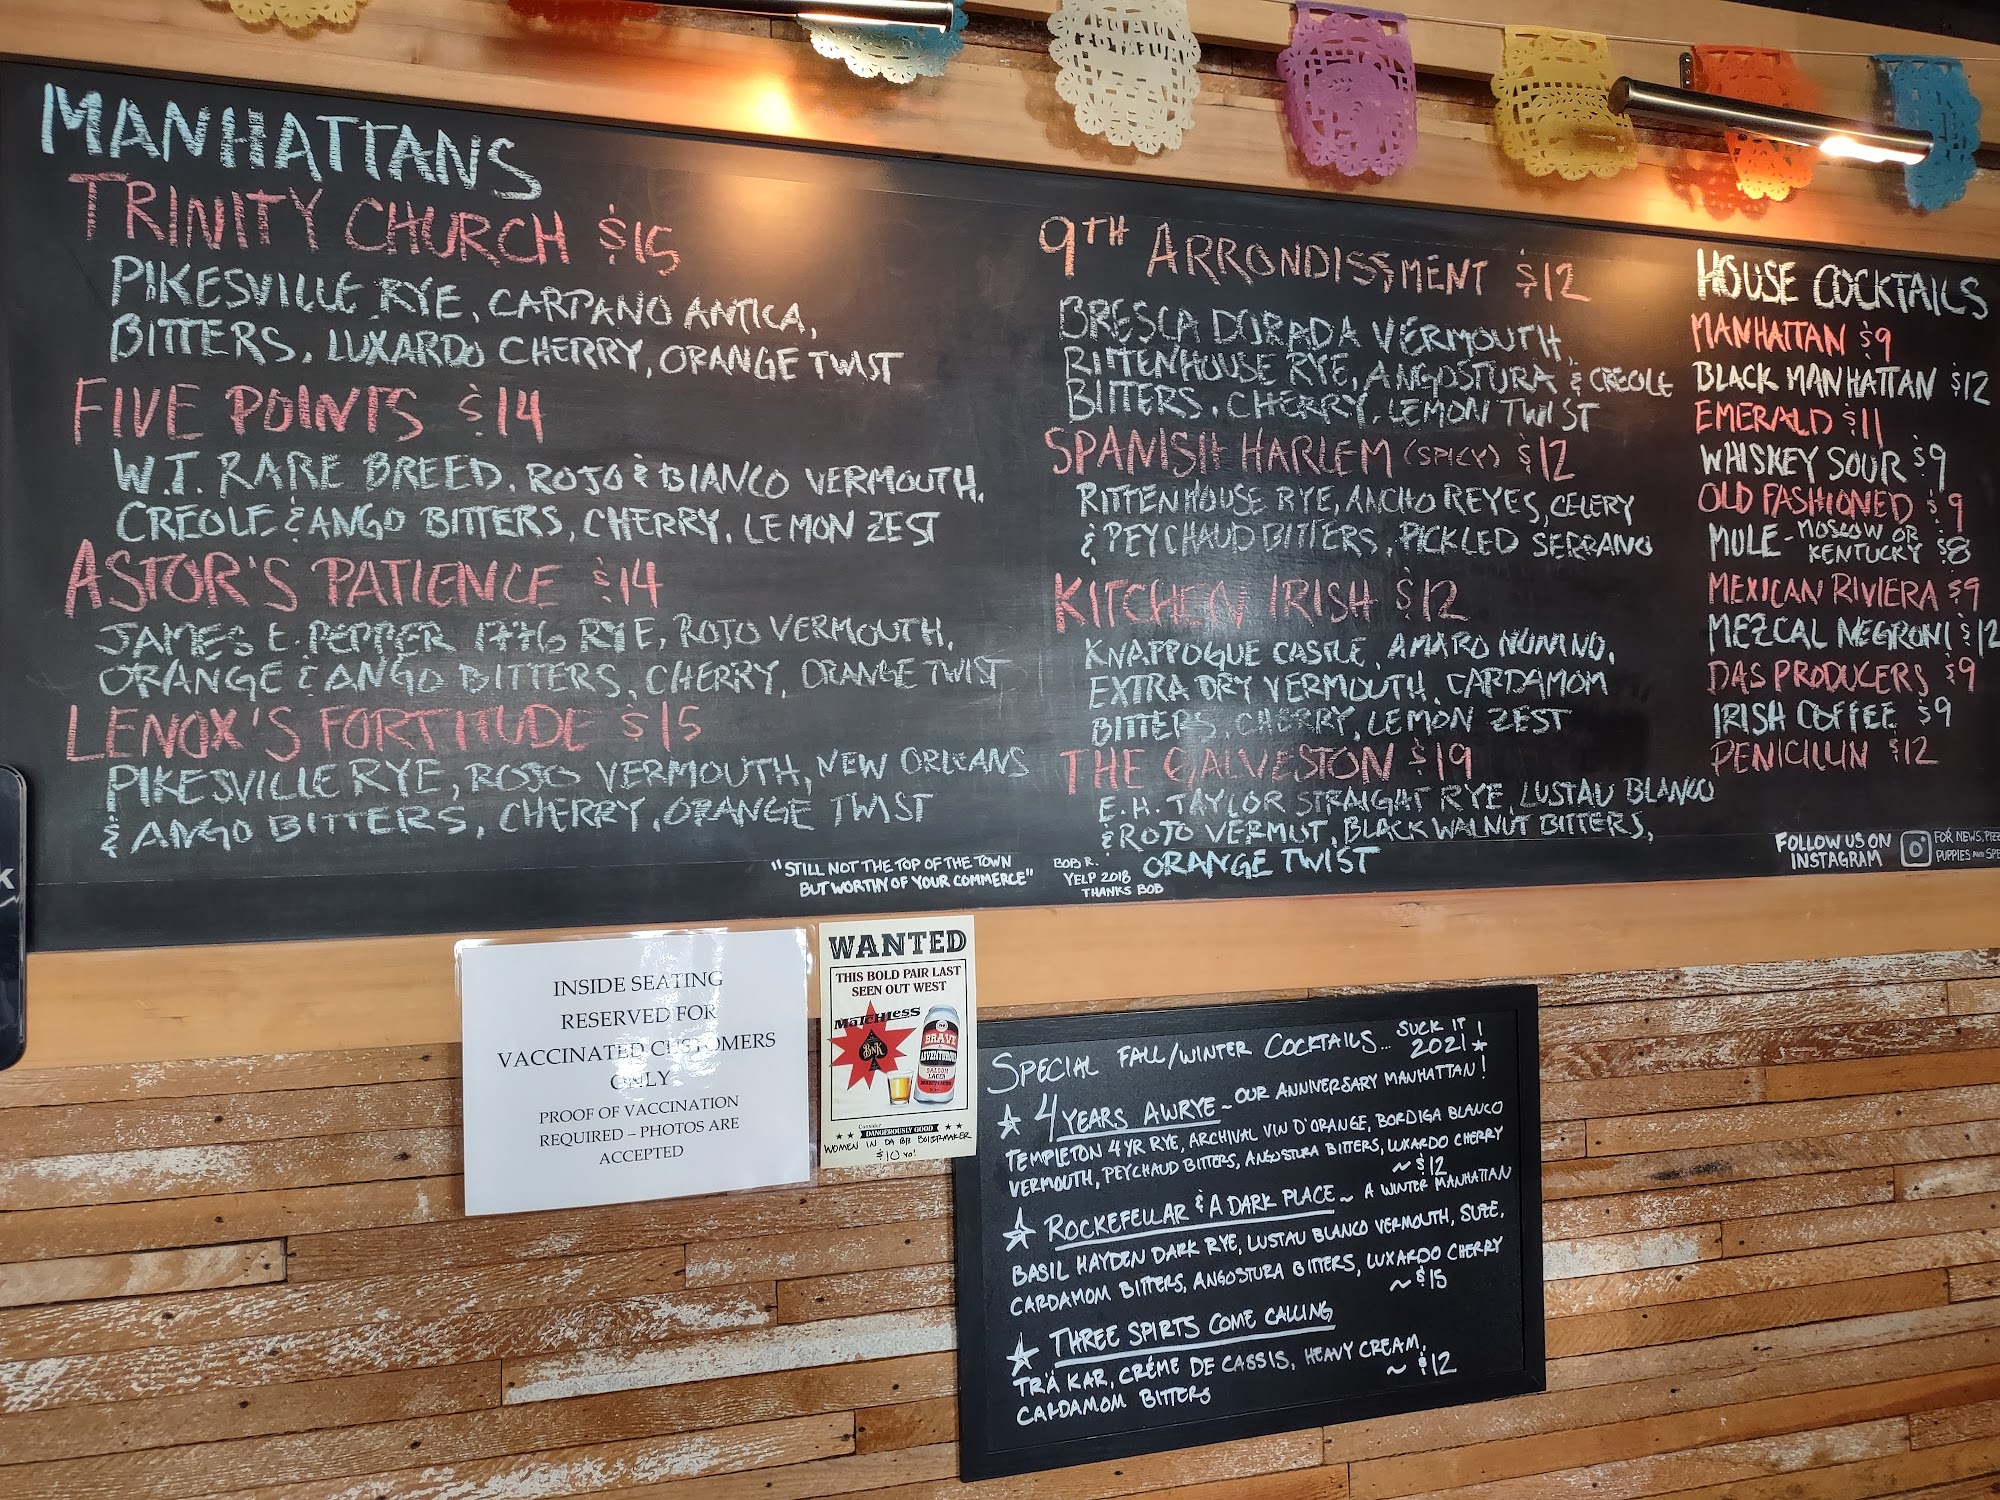 MANHATTANS
TRINITY CHURCH $15
PIKESVILLE RYE, CARPANO ANTICA,
BITTERS, LUXARDO CHERRY, ORANGE TWIST
FIVE POINTS $14
W.T. RARE BREED, ROJO & BIANCO VERMOUTH,
CREOLE & ANGO BITTERS, CHERRY, LEMON ZEST
ASTOR'S PATIENCE $14
JAMES E. PEPPER 1776 RYE, ROJO VERMOUTH,
ORANGE & ANGO BITTERS, CHERRY, ORANGE TWIST
LENOX'S FORTITUDE $15
PIKESVILLE RYE, ROJO VERMOUTH, NEW ORLEANS
& ANGO BITTERS, CHERRY, ORANGE TWIST
9TH ARRONDISSMENT $12
BRESCA DORADA VERMOUTH,
RITTENHOUSE RYE, ANGOSTURA & CREOLE
BITTERS, CHERRY, LEMON TWIST
SPANISH HARLEM (SPICY) $12
RITTENHOUSE RYE, ANCHO REYES, CELERY
& PEYCHAUD BITTERS, PICKLED SERRANO
KITCHEN IRISH $12
KNAPPOGUE CASTLE, AMARO NONINO,
EXTRA DRY VERMOUTH, CARDAMOM
BITTERS, CHERRY, LEMON ZEST
THE GALVESTON $19
E.H. TAYLOR STRAIGHT RYE, LUSTAU BLANCO
& ROJO VERMUT, BLACK WALNUT BITTERS,
ORANGE TWIST
HOUSE COCKTAILS
MANHATTAN $9
BLACK MANHATTAN $12
EMERALD $11
WHISKEY SOUR $9
OLD FASHIONED $9
MULE - MOSCOW OR
KENTUCKY $8
MEXICAN RIVIERA $9
MEZCAL NEGRONI $12
DAS PRODUCERS $9
IRISH COFFEE $9
PENICILLIN $12
"STILL NOT THE TOP OF THE TOWN
BUT WORTHY OF YOUR COMMERCE"
BOB R.
YELP 2018
THANKS BOB
FOLLOW US ON
INSTAGRAM
FOR NEWS,
PUPPIES AND
INSIDE SEATING
RESERVED FOR
VACCINATED CUSTOMERS
ONLY.
PROOF OF VACCINATION
REQUIRED – PHOTOS ARE
ACCEPTED
WANTED
THIS BOLD PAIR LAST
SEEN OUT WEST
MATCHLESS
BNK
BRAVE
ADVENTUROUS
SALOON
LAGER
Consider
DANGEROUSLY GOOD
WOMEN IN DA BIB BOILERMAKER
$10 YO!
SPECIAL FALL/WINTER COCKTAILS... SUCK IT
2021!
4 YEARS AWRYE ~ OUR ANNIVERSARY MANHATTAN!
TEMPLETON 4 YR RYE, ARCHIVAL VIN D'ORANGE, BORDIGA BLANCO
VERMOUTH, PEYCHAUD BITTERS, ANGOSTURA BITTERS, LUXARDO CHERRY
~ $12
ROCKEFELLAR & A DARK PLACE ~ A WINTER MANHATTAN
BASIL HAYDEN DARK RYE, LUSTAU BLANCO VERMOUTH, SUZE,
CARDAMOM BITTERS, ANGOSTURA BITTERS, LUXARDO CHERRY
~ $15
THREE SPIRTS COME CALLING
TRÄ KÁR, CRÉME DE CASSIS, HEAVY CREAM,
CARDAMOM BITTERS
~ $12